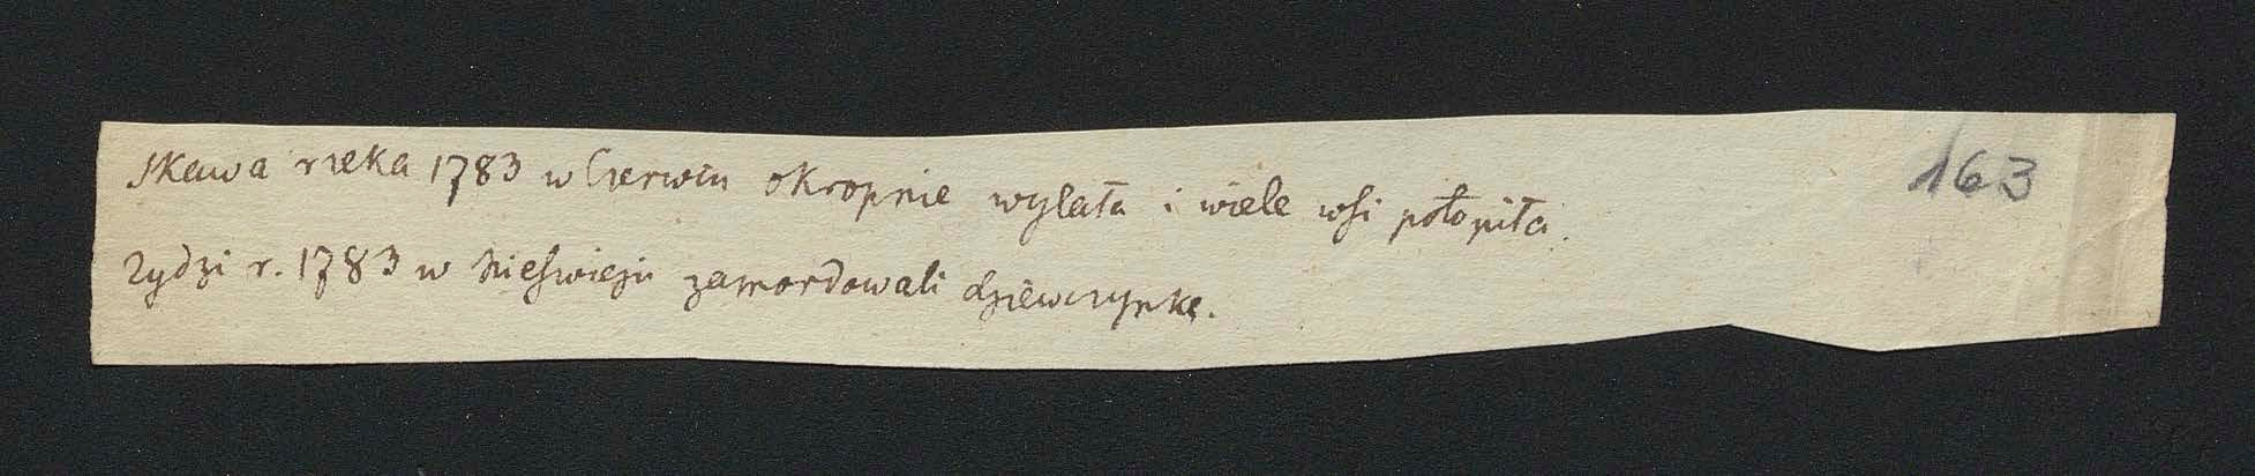 Skawa rzeka 1783 w Czerwcu okropnie wylała i wiele wsi potopiła.
163
Zydzi r. 1783 w Nieświeżu zamordowali dziewczynkę.